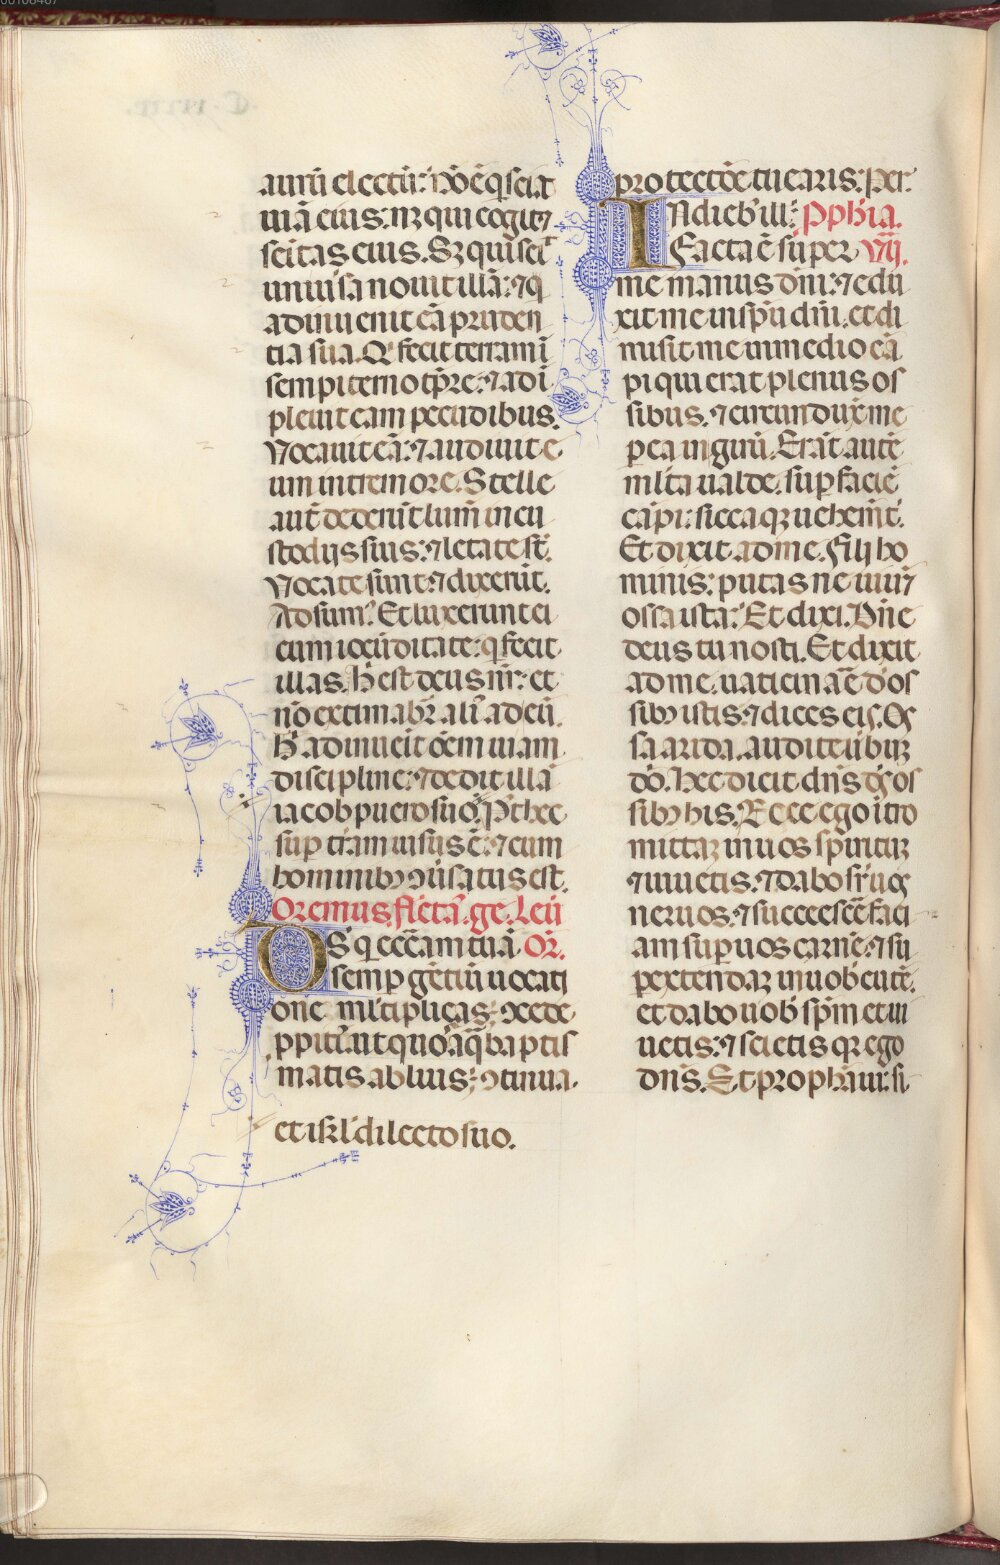 aurū electū: Nō ē q̄ sciat
uiā eius: nȝ qui cogitȝ
sēitas eius. Sȝ qui scit
uniuīsa nouit illā: ⁊ q
adinuenit eā pruden
tia sua. Q̄ fecit terram ī
sempiterno tp̄re: ⁊ adī
pleuit eam pecudibus.
Vocauit eā: ⁊ audiuit e
um in tremore. Stelle
aut̄ dederūt lum̄ in cu
stodijs suis: ⁊ letate st̄.
Vocate sunt ⁊ dixerūt.
Adsum̄. Et luxerunt ei
cum iocūditate: q̄ fecit
illas. H̄ est deus nr̄: et
nō extimabr̄ aliꝰ ad eū.
H̄ adinueīt oēm uiam
discipline: ⁊ dedit illā
iacob puero suo. P̄t hec
sup̄ tr̄am uisus ē: ⁊ cum
hominibȝ ↄ̄uersatus est.
Oremus. flēta. ge. Leū
DS q̄ ecc̄am tuā Or̄.
semp gētiū uocati
one mltiplicas: ↄcede
ppit̄. ut quo aq̄ baptis
matis abluis: ↄtinua
et isr̄l dilecto suo.
protectōe tuearis: Per.
IN dieb̄ ill̄: Pphīa.
Facta ē super Vij.
me manus dn̄i: ⁊ edu
xit me in sp̄u dn̄i. et di
misit me in medio cā
pi qui erat plenus os
sibus. ⁊ circunduxit me
per ea in girū. Erāt autē
mlta ualde. sup̄ faciē
cāpi: sicca qȝ uehem̄t.
Et dixit ad me. Fili ho
minis: putas ne uiuēt
ossa ista: Et dixi. Dn̄e
deus tu nosti. Et dixit
ad me. uaticinaē d̄ os
sibȝ istis: ⁊ dices eis. Os
sa arida. audite ūbuȝ
dn̄. Hec dicit dn̄s dꝰ os
sibȝ his. Ecce ego ītro
mittaȝ in uos spirituȝ
⁊ uiuetis. ⁊ dabo sr̄ uos
neruos. ⁊ succrescē faci
am sup̄ uos carnē. ⁊ su
pextendaȝ in uob̄ cutē.
et dabo uob̄ sp̄m et ui
uetis: ⁊ scietis qȝ ego
dn̄s. Et prophaui: si